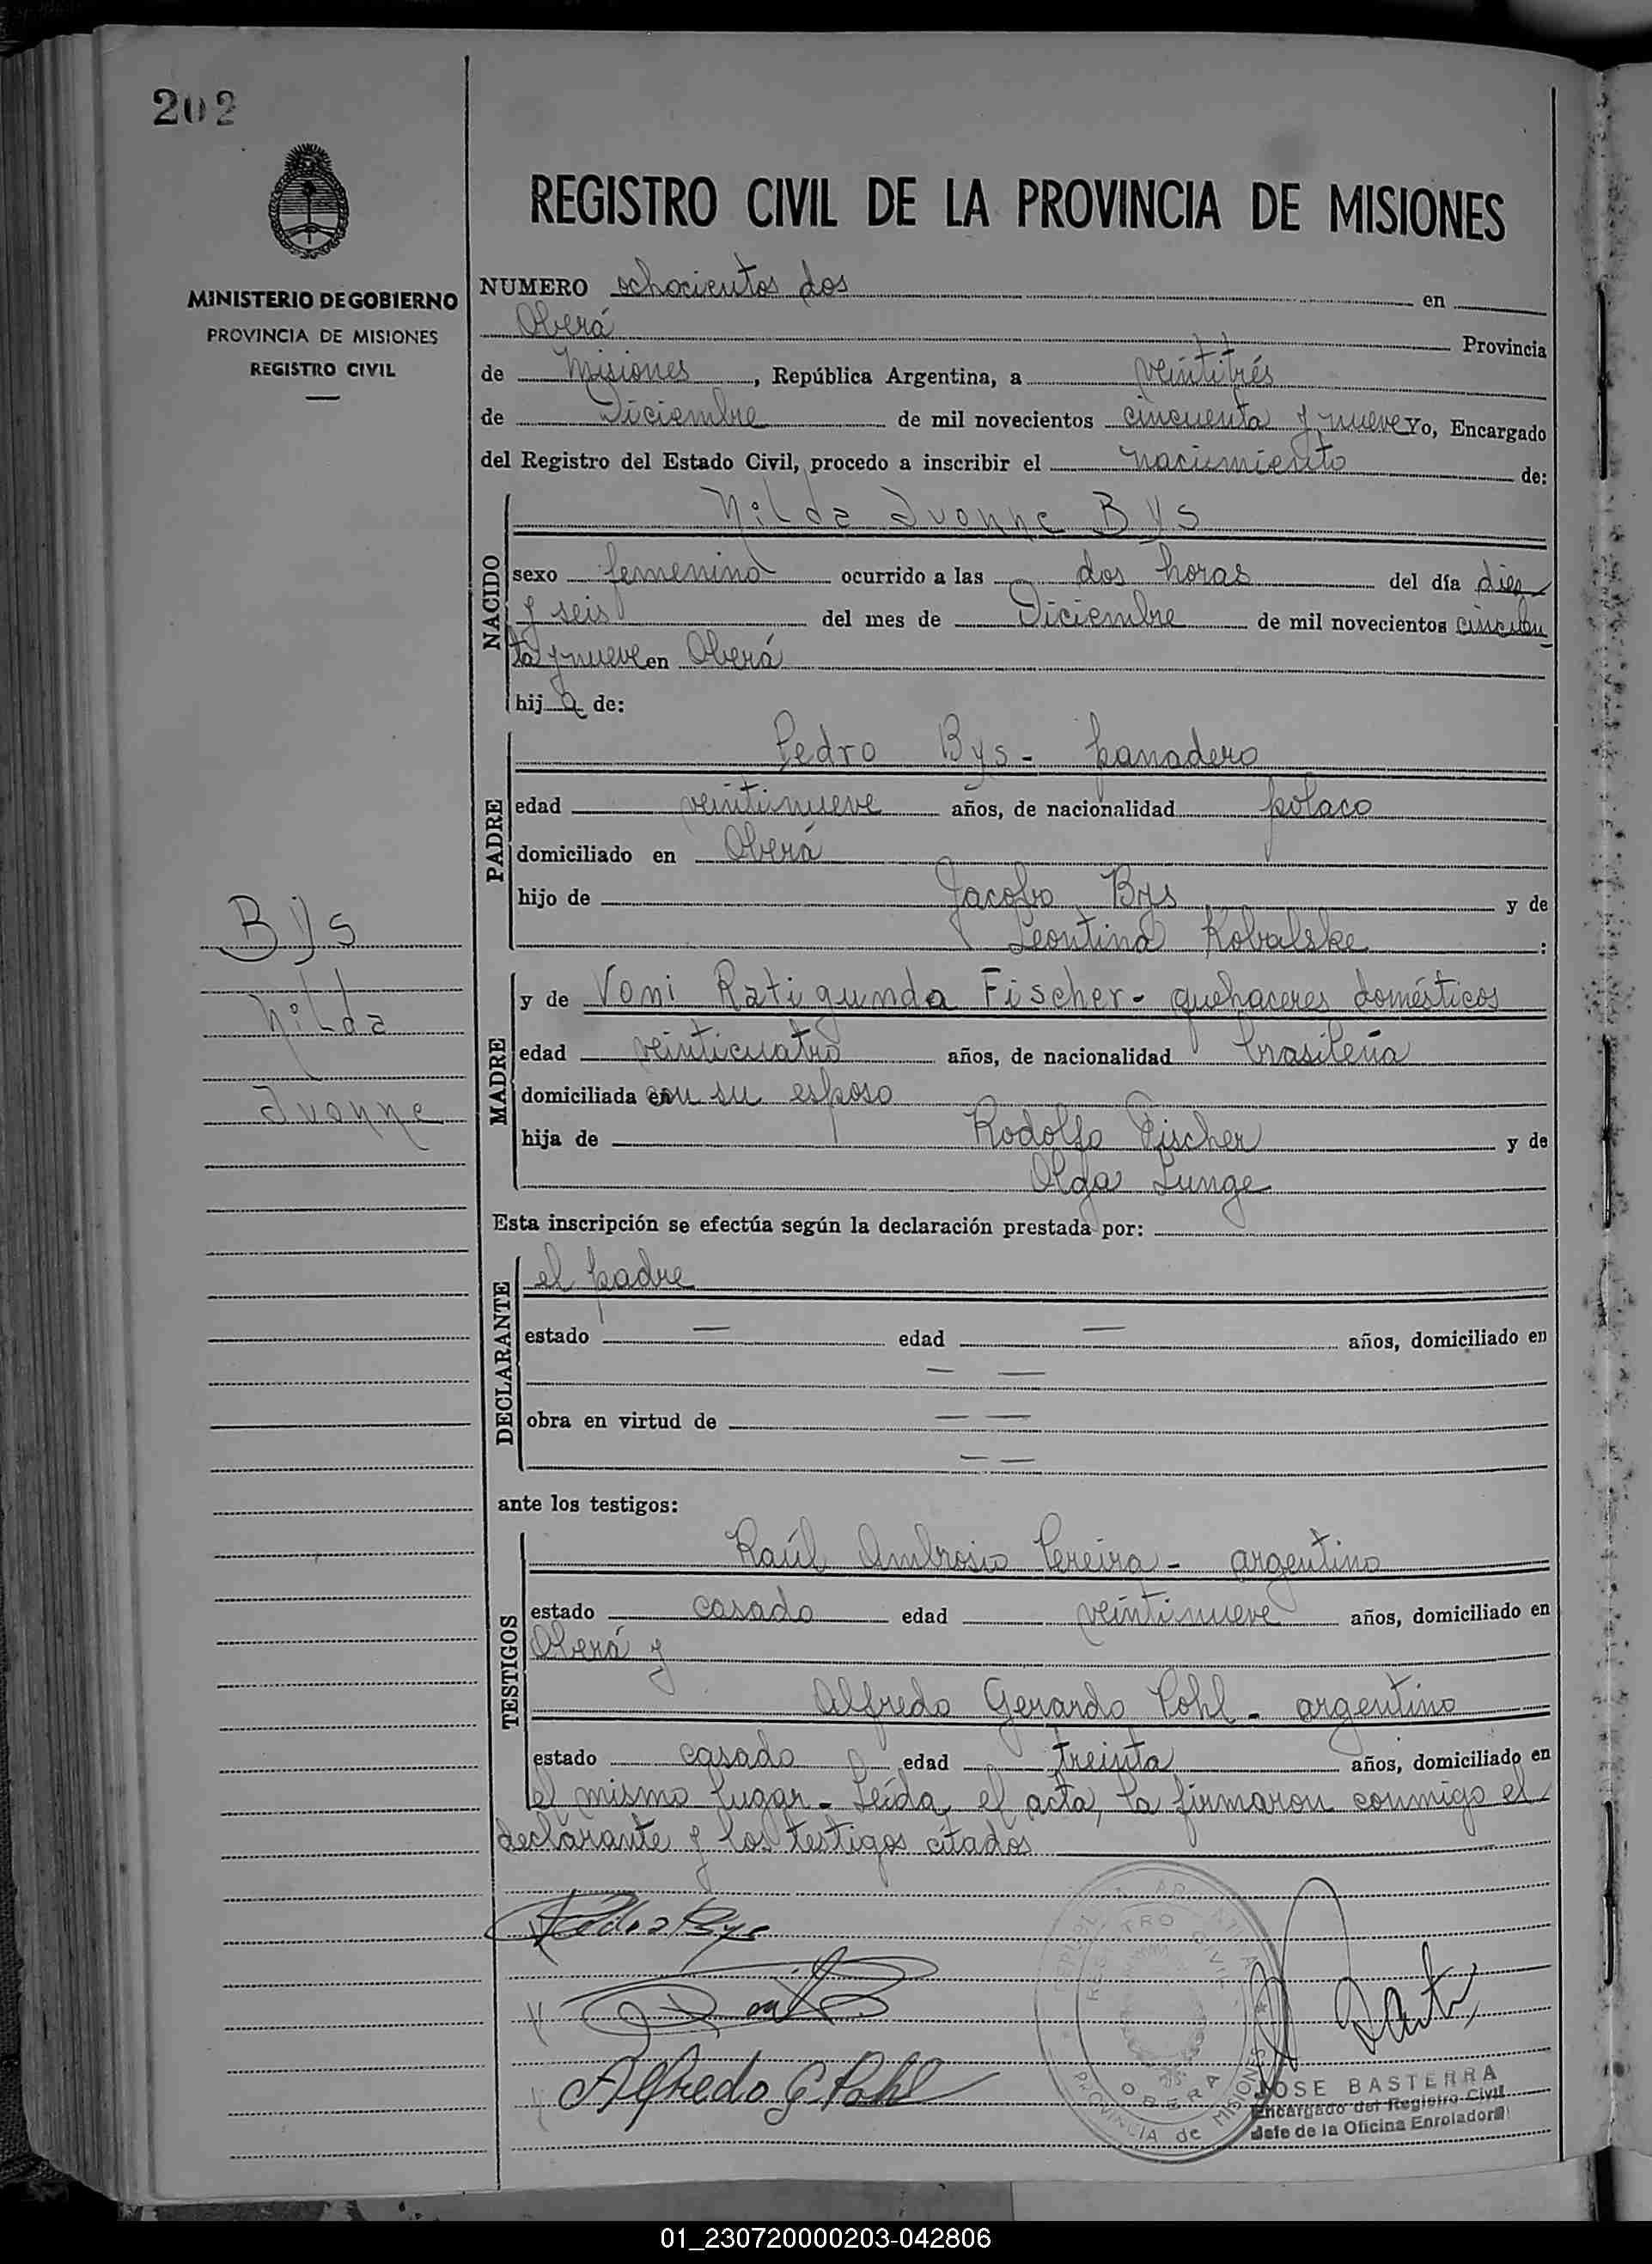 202
MINISTERIO DE GOBIERNO
PROVINCIA DE MISIONES
REGISTRO CIVIL
REGISTRO CIVIL DE LA PROVINCIA DE MISIONES
NUMERO ochocientos dos en
Oberá Provincia
de Misiones, República Argentina, a veintitrés
de Diciembre de mil novecientos cincuenta y nueve Yo, Encargado
del Registro del Estado Civil, procedo a inscribir el nacimiento de:
NACIDO
Nilda Ivonne Bys
sexo femenino ocurrido a las dos horas del día diez
y seis del mes de Diciembre de mil novecientos cincuen
ta y nueve en Oberá
hija de:
PADRE
Pedro Bys - panadero
edad veintinueve años, de nacionalidad polaco
domiciliado en Oberá
hijo de Jacobo Bys y de
Leontina Kobalske :
MADRE
y de Voni Ratigunda Fischer - quehaceres domésticos
edad veinticuatro años, de nacionalidad brasileña
domiciliada con su esposo
hija de Rodolfo Fischer y de
Olga Lunge
Bys
Nilda
Ivonne
Esta inscripción se efectúa según la declaración prestada por:
DECLARANTE
el padre
estado — edad — años, domiciliado en
— —
obra en virtud de — —
— —
ante los testigos:
TESTIGOS
Raúl Ambrosio Pereira - argentino
estado casado edad veintinueve años, domiciliado en
Oberá y
Alfredo Gerardo Pohl - argentino
estado casado edad treinta años, domiciliado en
el mismo lugar - Leída el acta, la firmaron conmigo el
declarante y los testigos citados
Pedro Bys
Alfredo G. Pohl
REPUBLICA ARGENTINA
REGISTRO CIVIL
OBERA
PROVINCIA de MISIONES
JOSE BASTERRA
Encargado del Registro Civil
Jefe de la Oficina Enroladora
01_230720000203-042806